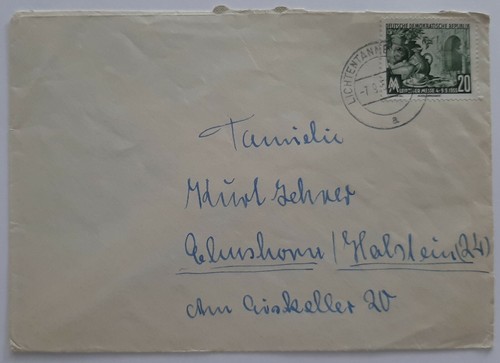 DEUTSCHE DEMOKRATISCHE REPUBLIK
LICHTENTANNE
20
a
Familie
Kurt Lehrer
Elmshorn / Holstein (24)
Am Eiskeller 20